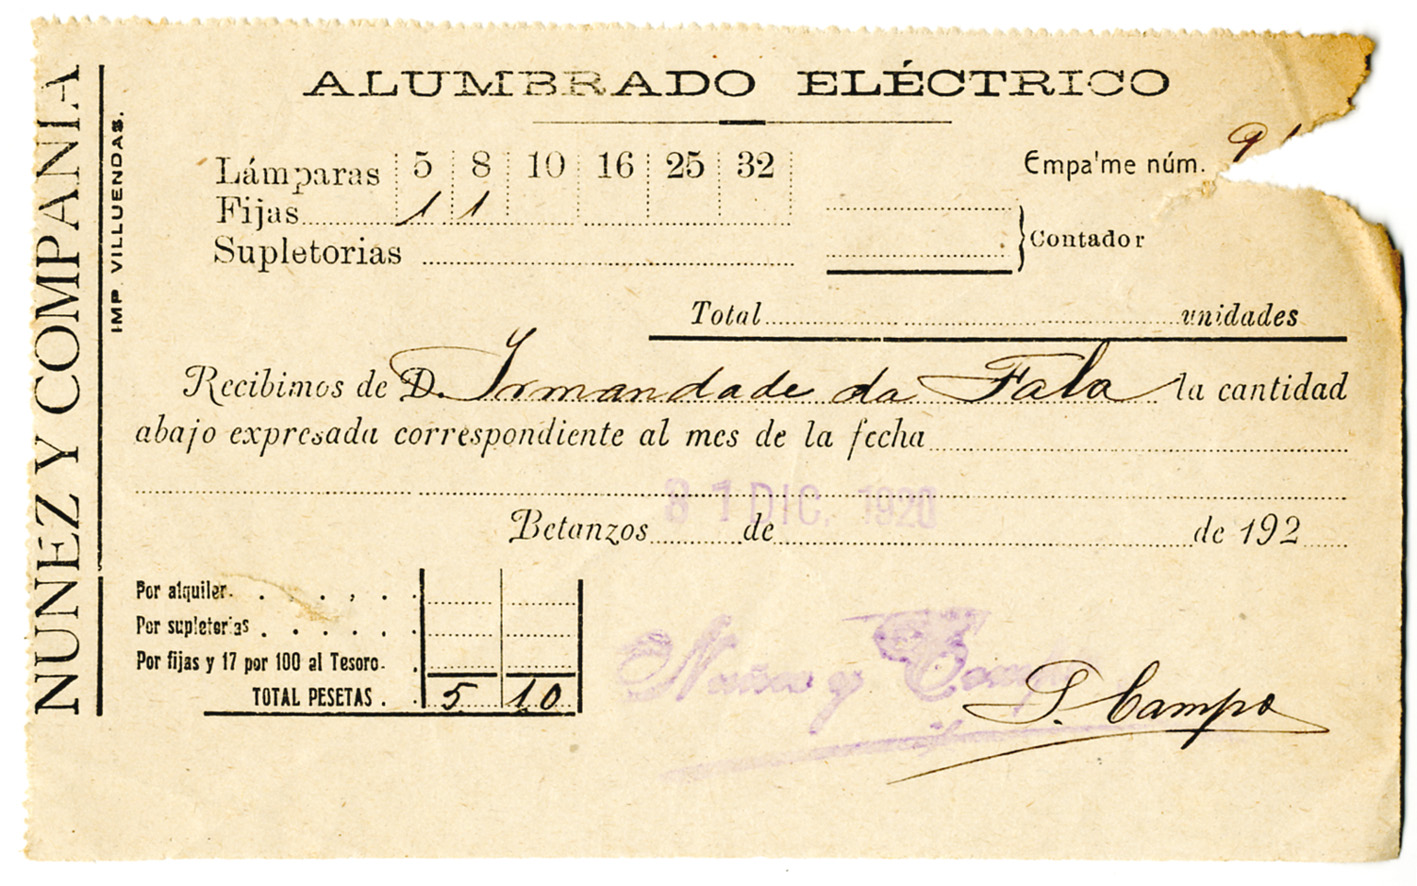 NUÑEZ Y COMPAÑÍA
IMP. VILLUENDAS.
ALUMBRADO ELÉCTRICO
Lámparas 5 8 10 16 25 32
Empalme núm.
Fijas 1 1
Contador
Supletorias
Total unidades
Recibimos de D. Irmandade da Fala la cantidad
abajo expresada correspondiente al mes de la fecha
31 DIC. 1920
Betanzos de de 192
Por alquiler
Por supletorias
Por fijas y 17 por 100 al Tesoro
TOTAL PESETAS 5 10
Núñez y Comp
P. Campo